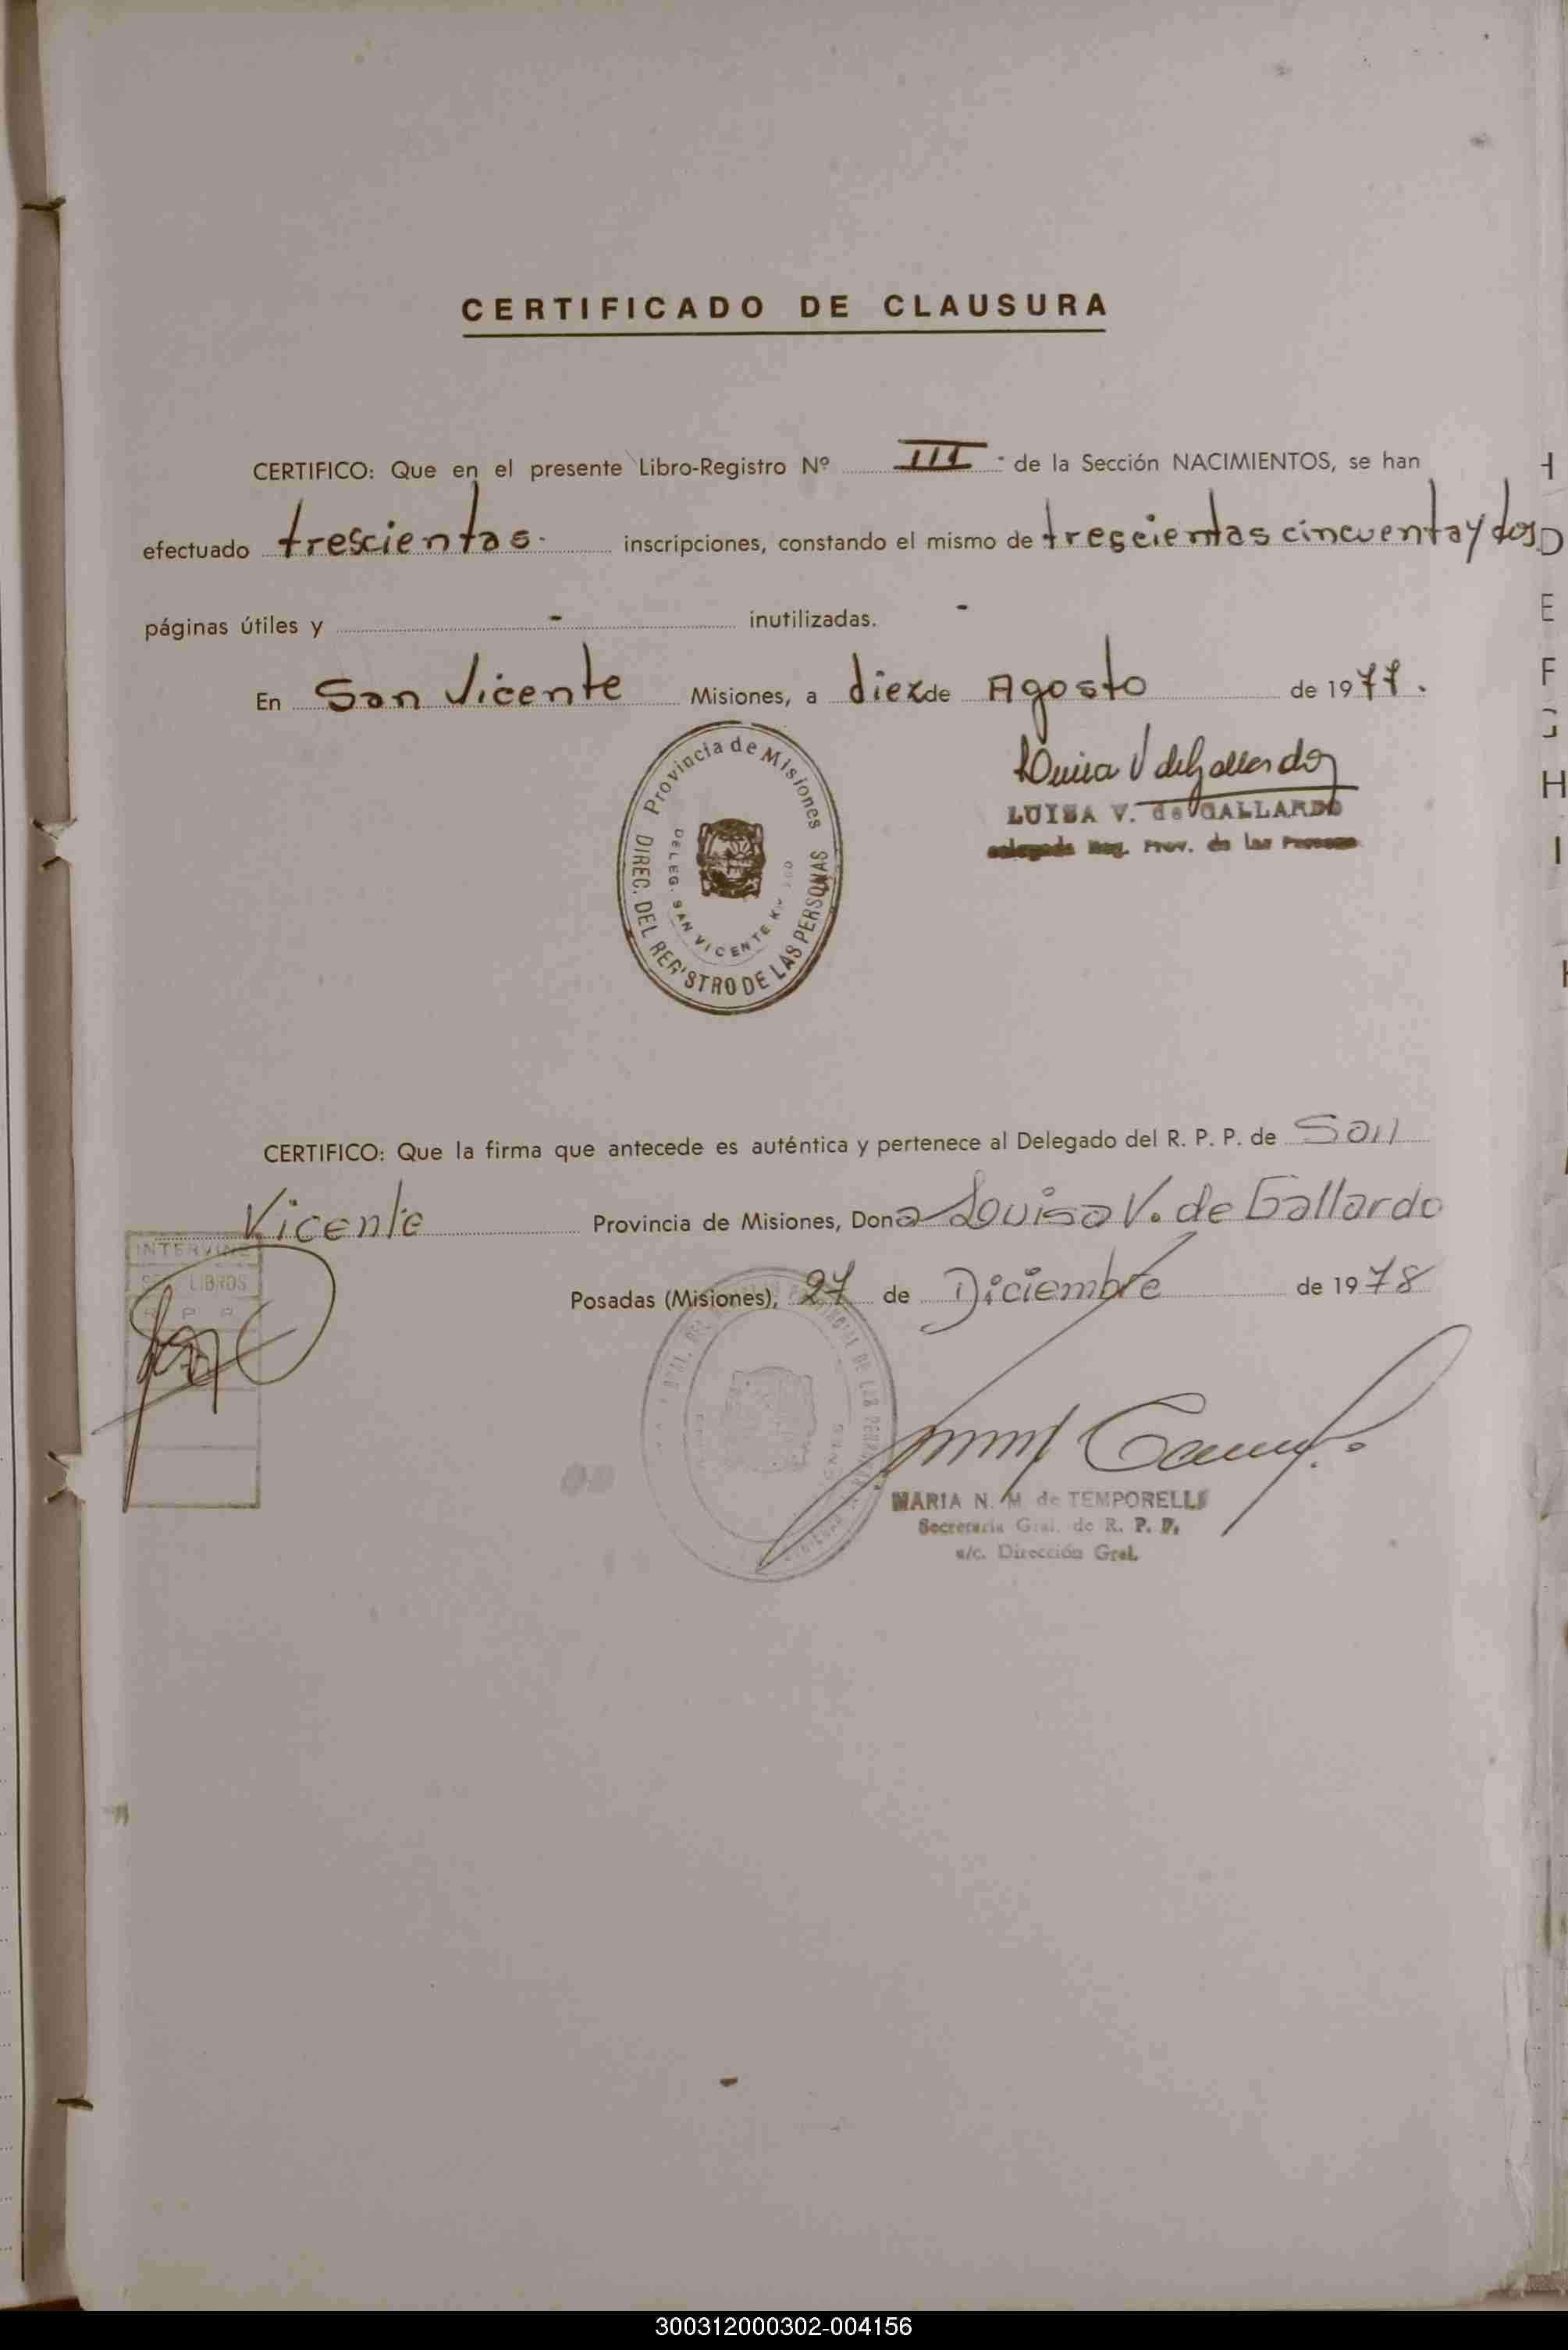 CERTIFICADO DE CLAUSURA
CERTIFICO: Que en el presente Libro-Registro Nº III - de la Sección NACIMIENTOS, se han
efectuado trescientas. inscripciones, constando el mismo de trescientas cincuenta y dos
páginas útiles y - inutilizadas. -
En San Vicente Misiones, a diez de Agosto de 1977.
Provincia de Misiones
DIREC. DEL REGISTRO DE LAS PERSONAS
DELEG. SAN VICENTE
Luisa V de Gallardo
LUISA V. de GALLARDO
Reg. Prov. de las
CERTIFICO: Que la firma que antecede es auténtica y pertenece al Delegado del R. P. P. de San
Vicente Provincia de Misiones, Dona Louisa V. de Gallardo
Posadas (Misiones), 27 de Diciembre de 1978
INTERVINE
LIBROS
R P P
MARIA N. M. de TEMPORELLI
Secretaria Gral. de R. P. P.
a/c. Dirección Gral.
D
E
F
G
H
I
300312000302-004156